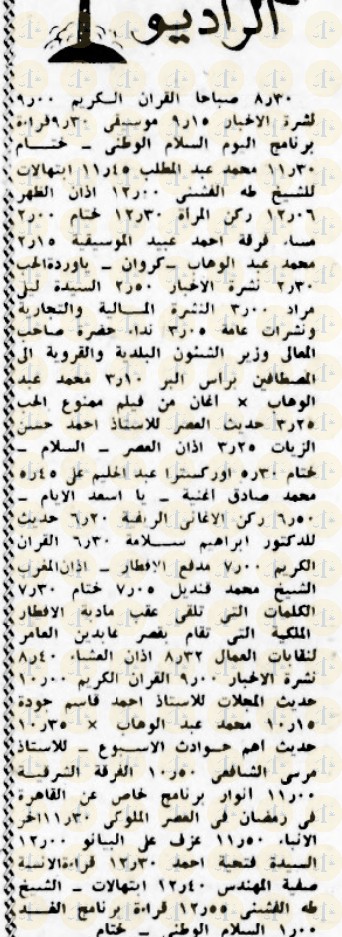 الراديو
٨٫٣٠ صباحا القران الكريم ٩٫٠٠
نشرة الاخبار ٩٫١٥ موسيقى ٩٫٣٠ قراءة
برنامج اليوم السلام الوطنى – ختــام
١١٫٣٠ محمد عبد المطلب ١١٫٤٥ ابتهالات
للشيخ طه الفشنى ١٢٫٠٠ اذان الظهر
١٢٫٠٦ ركن المرأة ١٢٫٣٠ ختام ٢٫٠٠
مساء فرقة احمد عبيد الموسيقية ٢٫١٥
محمد عبد الوهاب –كروان – ياوردةالحب
٢٫٣٠ نشرة الاخبار ٢٫٥٠ السيدة ليلى
مراد ٣٫٠٠ النشرة المــالية والتجارية
ونشرات عامة ٣٫٠٥ نداء حضرة صاحب
المعالى وزير الشئون البلدية والقروية الى
المصطافين براس البر ٣٫١٠ محمد عبد
الوهاب × أغان من فيلم ممنوع الحب
٣٫٢٥ حديث العصر للاستاذ احمد حسن
الزيات ٣٫٢٥ اذان العصر – السلام –
ختام ٥٫٣٠ اوركسترا عبد الحليم على ٥٫٤٥
محمد صادق اغنية – يا اسعد الايام –
٦٫٥٠ ركن الاغانى الريفية ٦٫٢٠ حديث
للدكتور ابراهيم ســلامة ٦٫٣٠ القران
الكريم ٧٫٠٠ مدفع الافطار – اذان المغرب
الشيخ محمد قنديل ٧٫٠٥ ختام ٧٫٣٠
الكلمات التى تلقى عقب مادبة الافطار
الملكية التى تقام بقصر عابدين العامر
لنقابات العمال ٨٫٣٢ اذان العشاء ٨٫٤٠
نشرة الاخبار ٩٫٠٠ القران الكريم ١٠٫٠٠
حديث المجلات للاستاذ احمد قاسم جودة
١٠٫١٥ محمد عبد الوهاب × ١٠٫٣٥
حديث اهم حــوادث الاســبوع – للاستاذ
مرسى الشافعى ١٠٫٥٠ الفرقة الشرقيــة
١١٫٠٠ انوار برنامج خاص عن القاهرة
فى رمضان فى العصر الملوكى ١١٫٣٠اخر
الانباء ١١٫٥٠ عزف على البيانو ١٢٫٠٠
السيدة فتحية احمد ١٢٫٣٠ قراءةالانسة
صفية المهندس ١٢٫٤٠ ابتهالات – الشيخ
طه الفشنى ١٢٫٥٥ قراءة برنامج الغــد
١٫٠٠ السلام الوطنى – ختام